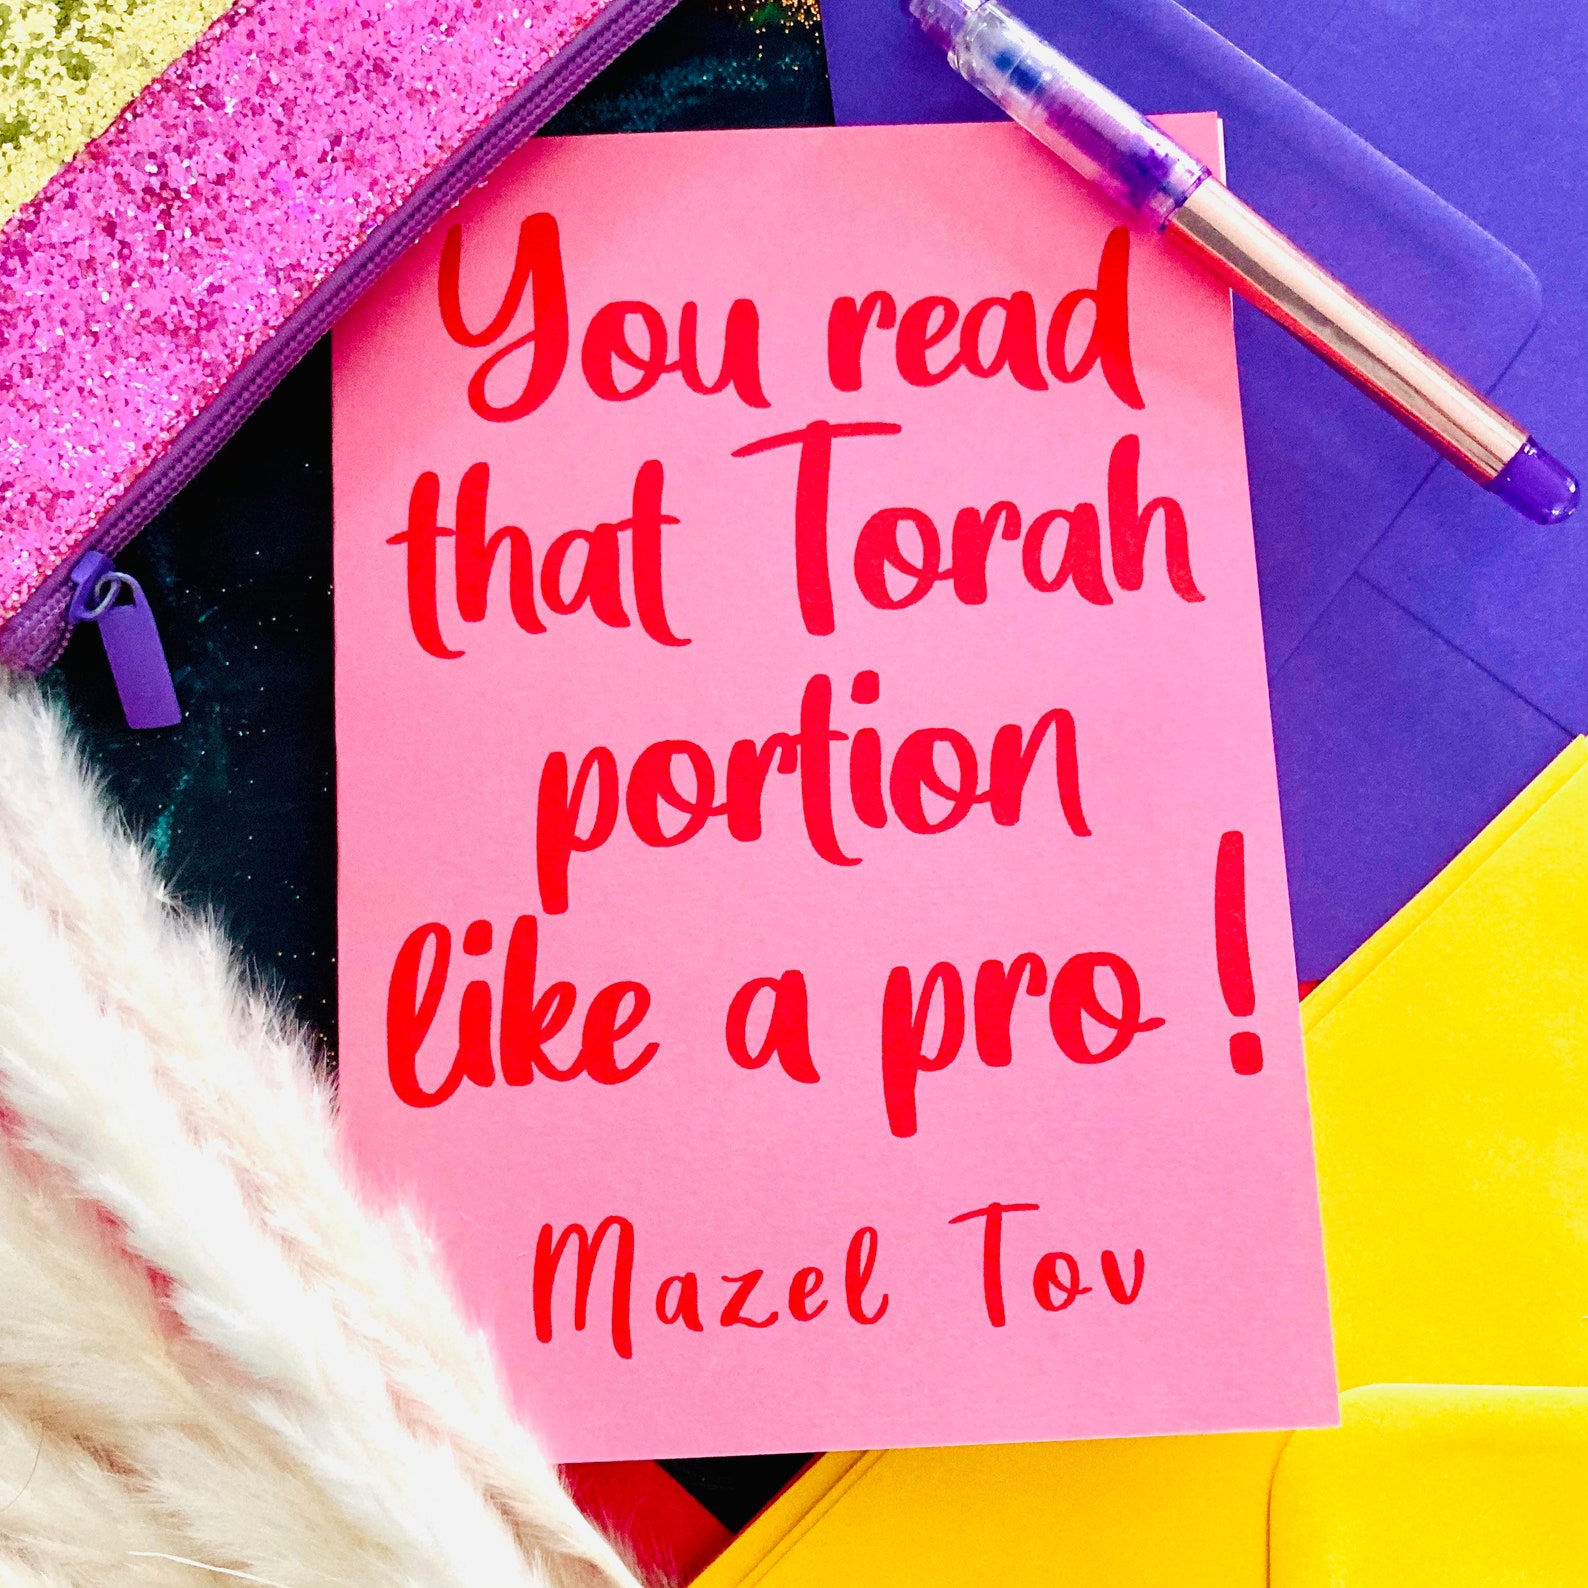 You read
that Torah
portion
like a pro!
Mazel Tov